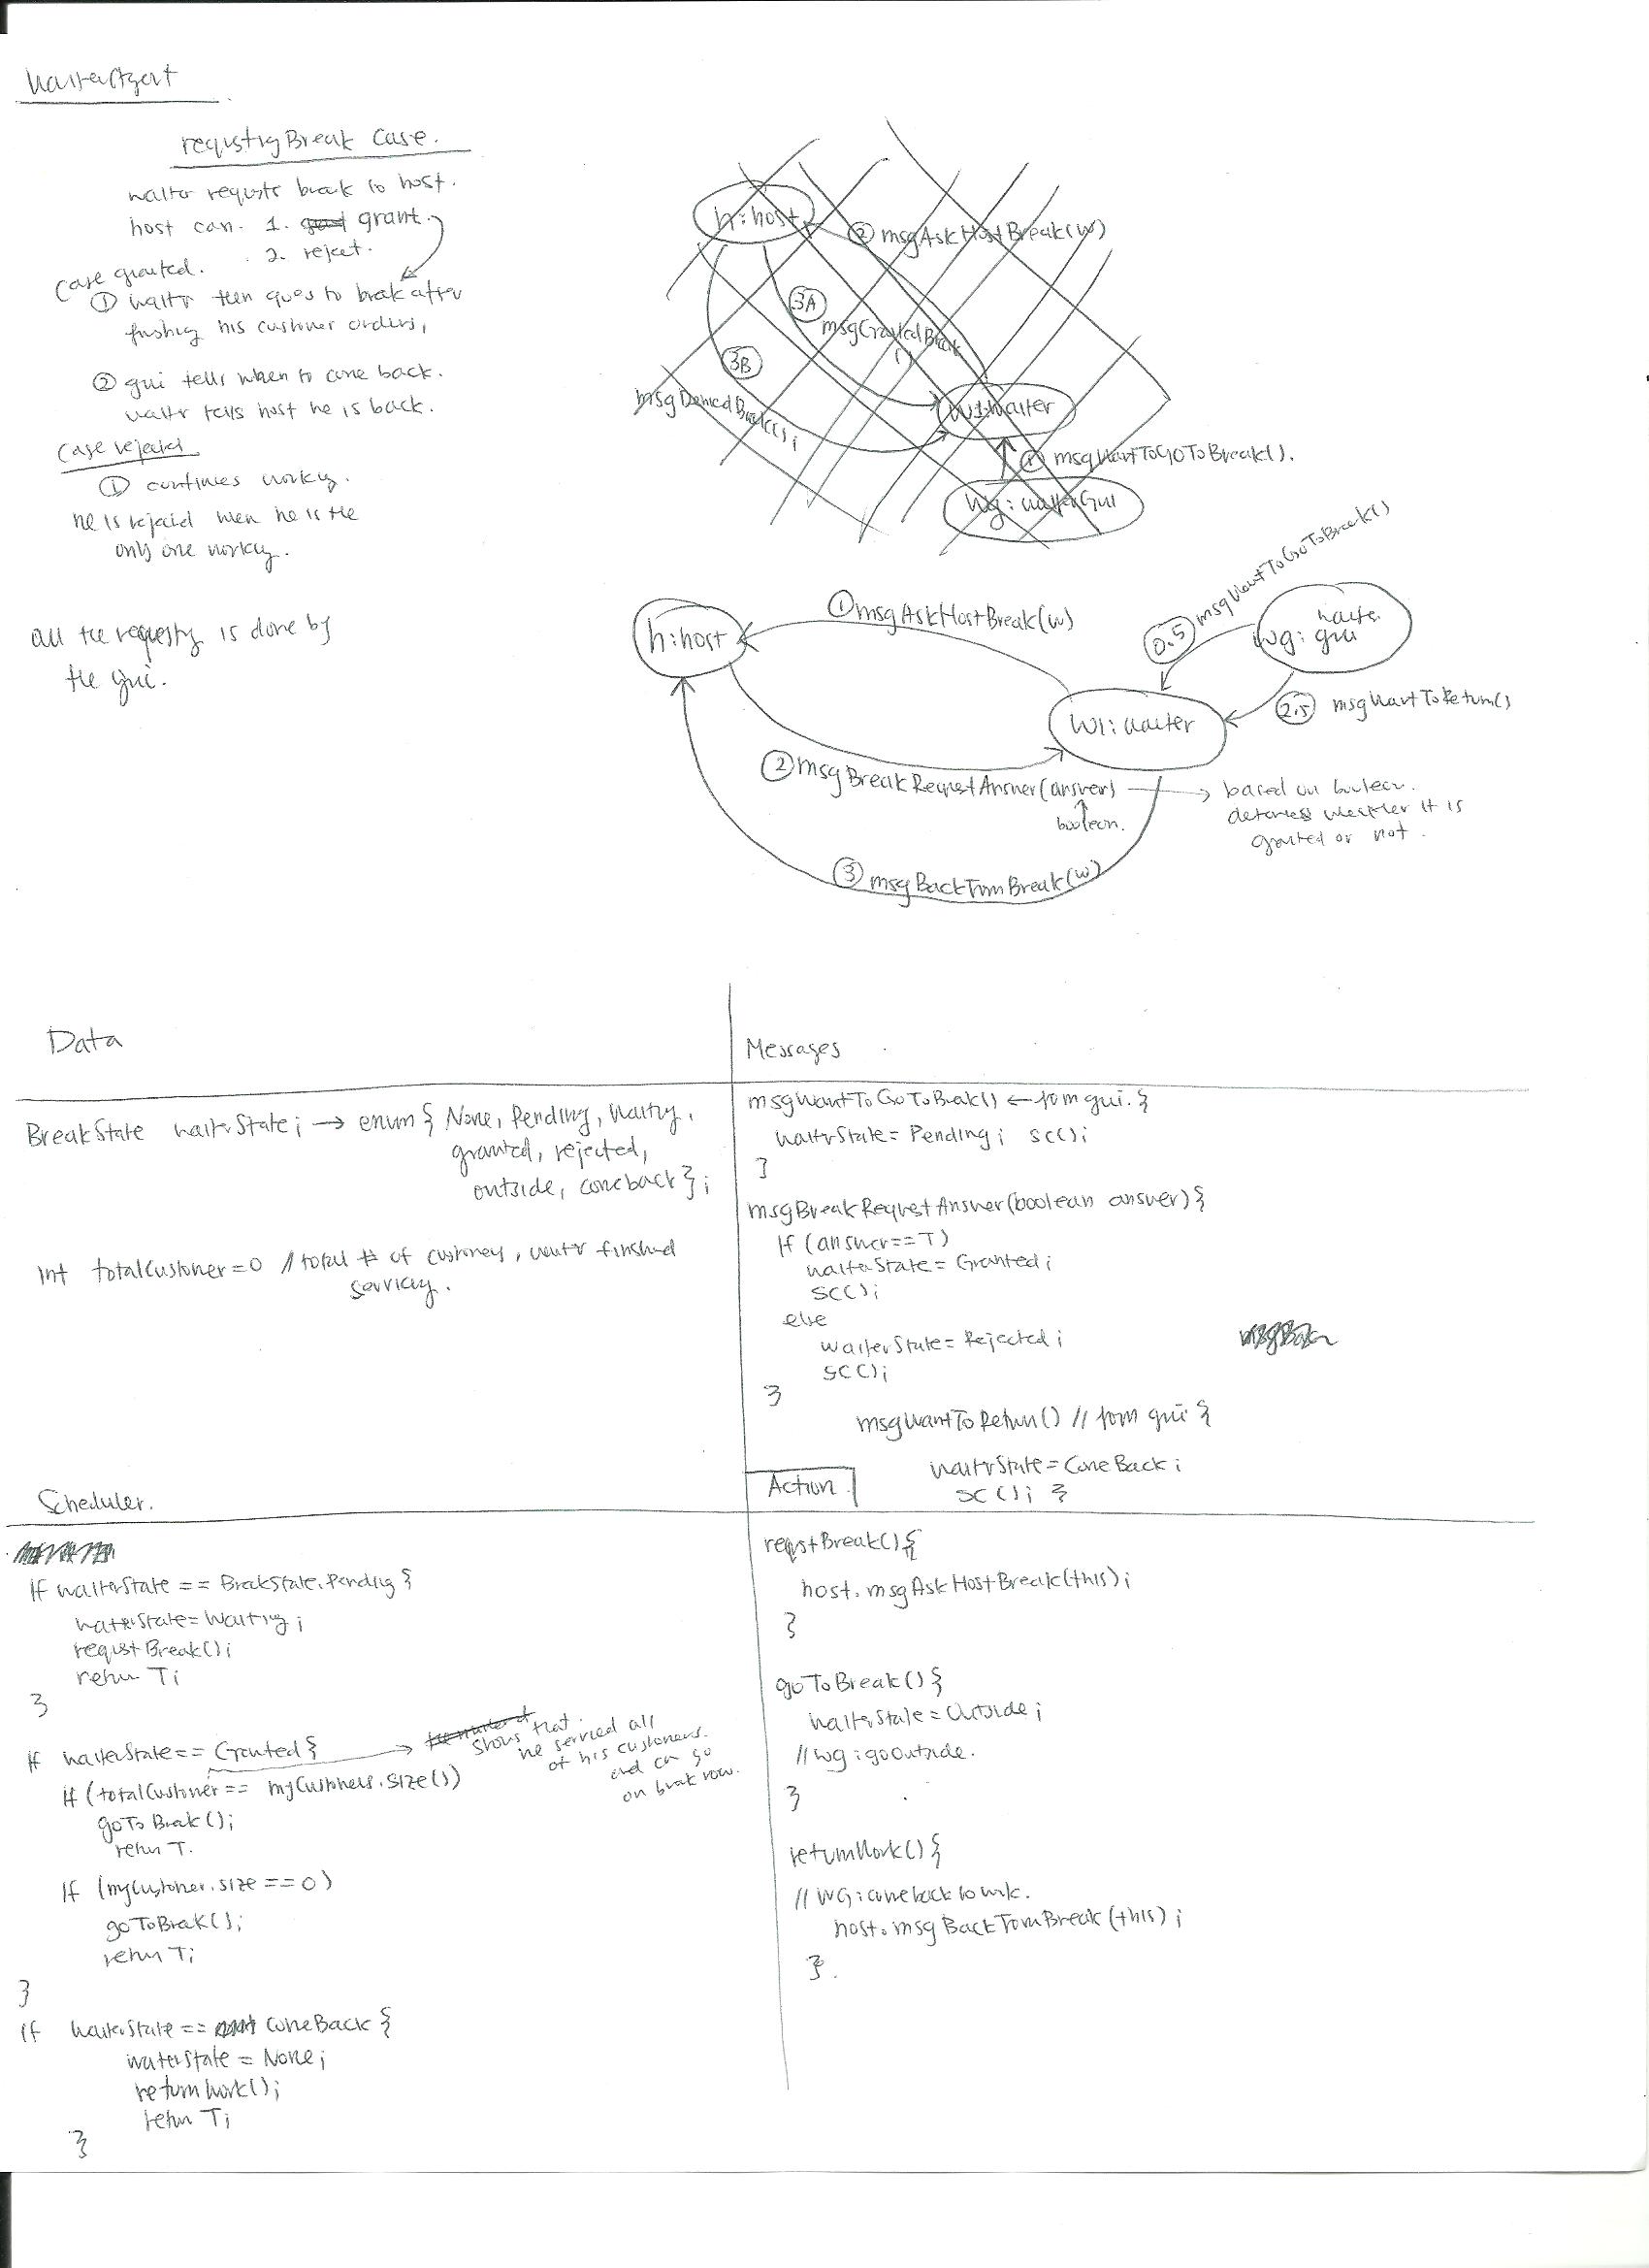 WaiterAgent
requstig Break Case.
waiter requsts break to host.
host can. 1. grant.
2. reject.
Case granted.
① waitr then goes to break after
finshig his custmer orders,
② gui tells when to come back.
waitr tells host he is back.
Case rejected
① continues workig.
he is rejectd when he is the
only one workig.
all the requestig is done by
the gui.
h:host
② msgAskHostBreak(w)
3A
msgGrantedBreak
()
3B
msgDeniedBreak();
W1:Waiter
① msgWantToGOToBreak().
wg:waiterGui
h:host
① msgAskHostBreak(w)
0.5 msgWantToGoToBreak()
wg: waiter gui
W1:waiter
2.5 msgWantToReturn()
② msgBreakRequestAnswer(answer)
boolean.
based on boolean.
determines whether it is
granted or not.
③ msgBackFromBreak(w)
Data
BreakState waiterState; → enum { None, Pending, Waiting,
granted, rejected,
outside, comeback};
Int totalCustomer=0 //total # of customers, waitr finished
servicing.
Messages
msgWantToGoToBreak() ← from gui. {
waitrState= Pending; SC();
}
msgBreakRequestAnswer(boolean answer){
If (answer==T)
waiterState= Granted;
SC();
else
waiterState= Rejected;
SC();
}
msgWantToReturn() // from gui {
waitrState= ComeBack;
SC(); }
Scheduler.
If waiterState == BreakState.Pending {
waiterState= Waiting;
requstBreak();
return T;
}
If waiterState== Granted {
→ shows that
he serviced all
of his customers.
and can go
on break now.
If (totalCustomer== myCustomers.size())
goToBreak();
return T.
If (myCustomer.size==0)
goToBreak();
return T;
}
If waiterState== ComeBack {
waiterState = None;
returnWork();
return T;
}
Action
reqstBreak(){
host.msgAskHostBreak(this);
}
goToBreak(){
waiterState= Outside;
//wg:goOutside.
}
returnWork(){
//WG:comeback to work.
host.msgBackFromBreak(this);
}.